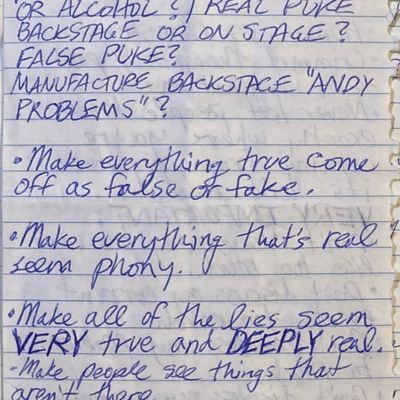 OR ALCOHOL?/ REAL PUKE
BACKSTAGE OR ON STAGE?
FALSE PUKE?
MANUFACTURE BACKSTAGE "ANDY
PROBLEMS"?
• Make everything true come
off as false or fake.
• Make everything that's real
seem phony.
• Make all of the lies seem
VERY true and DEEPLY real.
- Make people see things that
aren't there